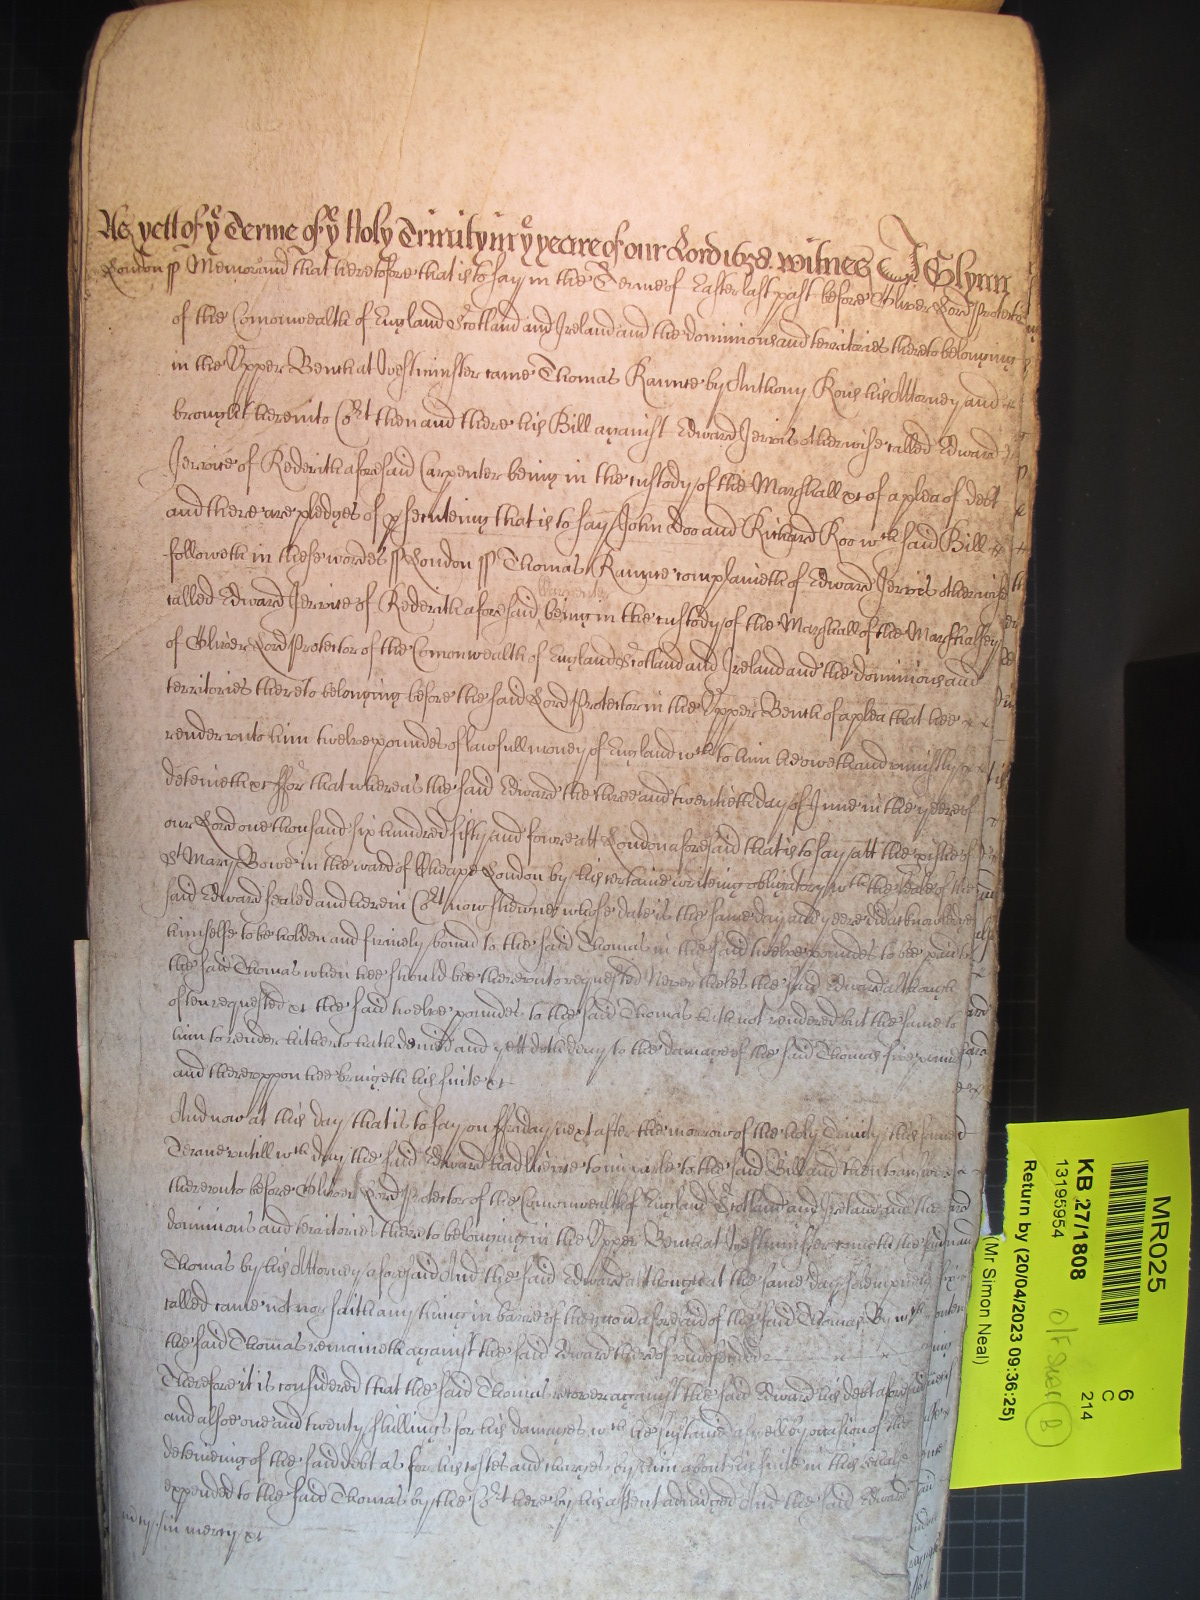 As yett of ye Terme of ye Holy Trinity in ye yeare of our Lord 1658. witnes J Glynn
London ss Memorand that heretofore that is to say in the Terme of Easter last past before Oliver Lord Protector
of the Comonwealth of England Scotland and Ireland and the dominions and territories thereto belonging
in the Upper Bench at Westminster came Thomas Raunce by Anthony Rous his Attorney and
brought here into Cort then and there his Bill against Edward Jervis otherwise called Edward
Jervice of Rederith aforesaid Carpenter being in the custody of the Marshall &c of a plea of debt
and there are pledges of psecuteing that is to say John Doo and Richard Roo wch said Bill
followeth in these wordes ss London ss Thomas Raunce complaineth of Edward Jervis otherwise
called Edward Jervice of Rederith aforesaid Carpenter being in the custody of the Marshall of the Marshalsey
of Oliver Lord Protector of the Comonwealth of England Scotland and Ireland and the dominions and
territories thereto belonging before the said Lord Protector in the Upper Bench of a plea that hee
render unto him twelve poundes of lawfull money of England wch to him he oweth and uniustly
deteineth &c ffor that whereas the said Edward the three and twentieth day of June in the yeere of
our Lord one thousand six hundred fifty and foure att London aforesaid that is to say att the pishe of
St Mary Bowe in the ward of Cheape London by his certaine writeing obligatory wth the seale of the
said Edward sealed and here in Cort now shewne whose date is the same day and yeere did acknowledge
himselfe to be holden and firmely bound to the said Thomas in the said twelve poundes to bee paid to
the said Thomas when hee should bee thereunto requested Neverthelesse the said Edward although
often requested &c the said twelve poundes to the said Thomas hath not rendered but the same to
him to render hitherto hath denied and yett doth deny to the damage of the said Thomas five pounds
and thereuppon hee bringeth his suite &c
And now at this day that is to say on ffriday next after the morrow of the holy Trinity this same
Terme untill wch day the said Edward had licence to imparle to the said Bill and then to answere
thereunto before Oliver Lord Protector of the Comonwealth of England Scotland and Ireland and the
dominions and territories thereto belonging in the Upper Bench at Westminster cometh the said
Thomas by his Attorney aforesaid And the said Edward although at the same day solempnely
called came not nor saith any thing in barre of the accon aforesaid of the said Thomas By wch
the said Thomas remaineth against the said Edward thereof undefended
Therefore it is considered that the said Thomas recover against the said Edward his debt aforesaid
and alsoe one and twenty shillings for his damages wch he sustained aswell by occasion of the
deteineing of the said debt as for his costes and charges by him about his suite in this behalfe
expended to the said Thomas by the Cort here by his assent adiudged And the said Edward
in mercy &c
MR025
6
C
214
KB 27/1808
13195954
Return by (20/04/2023 09:36:25)
(Mr Simon Neal)